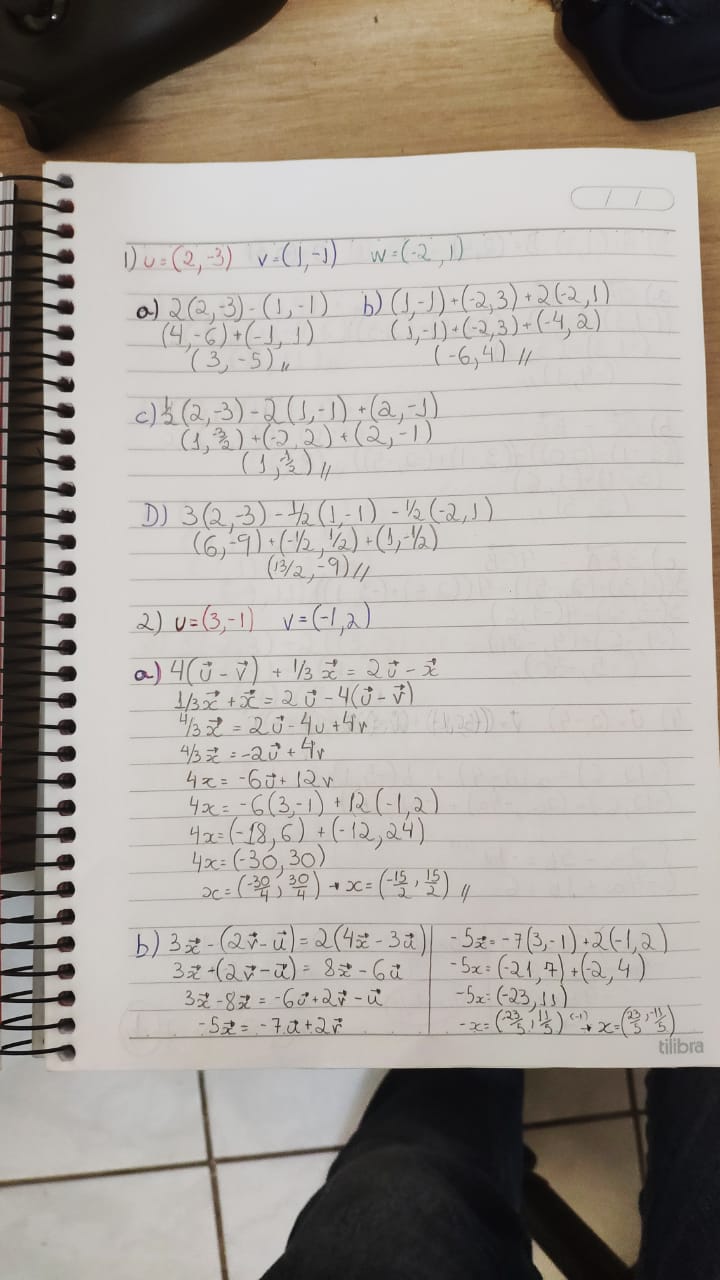 / /
1) u=(2,-3) v=(1,-1) w=(-2,1)
a) 2(2,-3)-(1,-1)
(4,-6)+(-1,1)
(3,-5)//
b) (1,-1)+(-2,3)+2(-2,1)
(1,-1)+(-2,3)+(-4,2)
(-6,4)//
c) 1/2(2,-3)-2(1,-1)+(2,-1)
(1,-3/2)+(-2,2)+(2,-1)
(1,-1/2)//
D) 3(2,-3)-1/2(1,-1)-1/2(-2,1)
(6,-9)+(-1/2,1/2)+(1,-1/2)
(13/2,-9)//
2) u=(3,-1) v=(-1,2)
a) 4(u⃗-v⃗)+1/3x⃗=2u⃗-x⃗
1/3x⃗+x⃗=2u⃗-4(u⃗-v⃗)
4/3x⃗=2u⃗-4u+4v
4/3x⃗=-2u⃗+4v
4x=-6u⃗+12v
4x=-6(3,-1)+12(-1,2)
4x=(-18,6)+(-12,24)
4x=(-30,30)
x=(-30/4,30/4)→x=(-15/2,15/2)//
b) 3x⃗-(2v⃗-u⃗)=2(4x⃗-3u⃗)
3x⃗+(2v⃗-u⃗)=8x⃗-6u⃗
3x⃗-8x⃗=-6u⃗+2v⃗-u⃗
-5x⃗=-7u⃗+2v⃗
-5x⃗=-7(3,-1)+2(-1,2)
-5x=(-21,7)+(-2,4)
-5x=(-23,11)
-x=(-23/5,11/5) (-1)→x=(23/5,-11/5)
tilibra